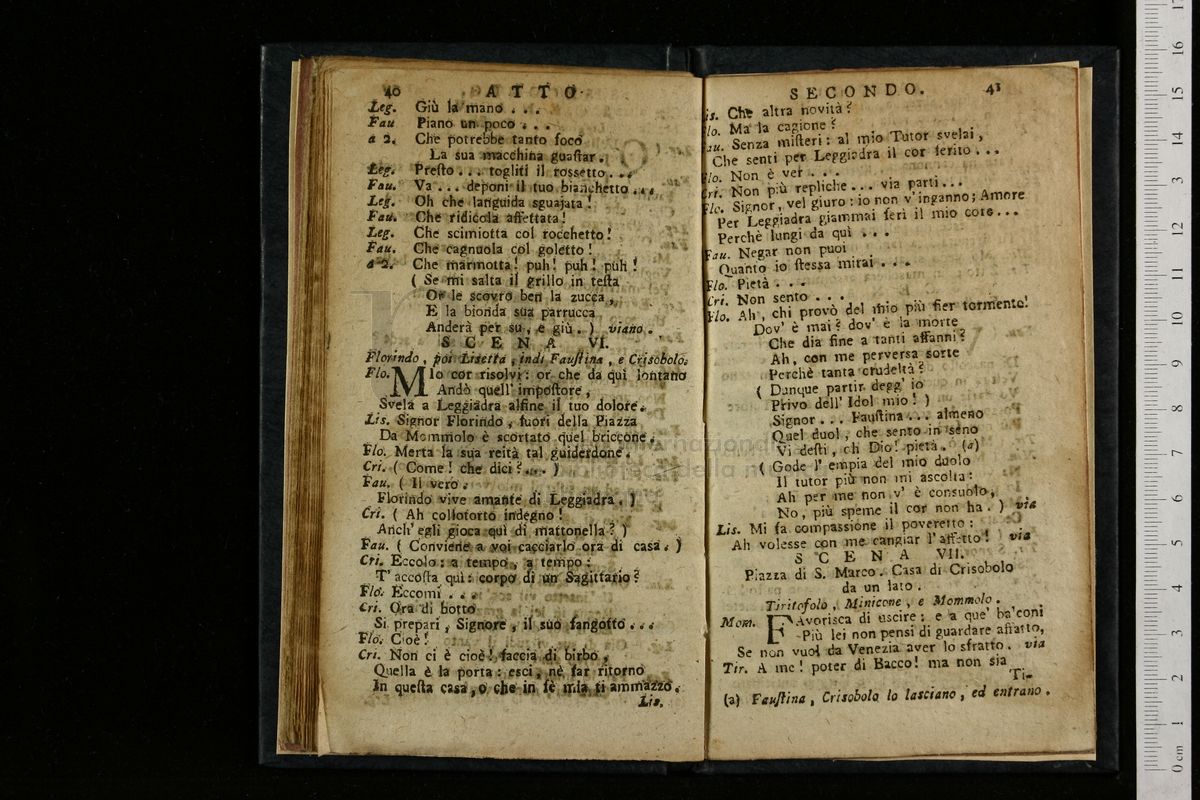 40 ATTO
Leg. Giù la mano . . .
Fau Piano un poco . . .
a 2. Che potrebbe tanto foco
La sua macchina guaſtar.
Leg. Preſto . . . togliti il rossetto . . .
Fau. Va . . . deponi il tuo bianchetto . . .
Leg. Oh che languida sguajata!
Fau. Che ridicola affettata!
Leg. Che scimiotta col rocchetto!
Fau. Che cagnuola col goletto!
a 2. Che marmotta! puh! puh! puh!
( Se mi salta il grillo in teſta
Or le scovro ben la zucca,
E la bionda sua parrucca
Anderà per su, e giù. ) viano.
SCENA VI.
Florindo, poi Lisetta, indi Fauſtina, e Crisobolo.
Flo. MIo cor risolvi: or che da qui lontano
Andò quell' impoſtore,
Svela a Leggiadra alfine il tuo dolore.
Lis. Signor Florindo, fuori della Piazza
Da Mommolo è scortato quel briccone.
Flo. Merta la sua reità tal guiderdone.
Cri. ( Come! che dici? . . . )
Fau. ( Il vero.
Florindo vive amante di Leggiadra. )
Cri. ( Ah collotorto indegno!
Anch' egli gioca quì di mattonella? )
Fau. ( Conviene a voi cacciarlo ora di casa. )
Cri. Eccolo: a tempo, a tempo:
T' accoſta quì: corpo di un Sagittario?
Flo. Eccomi . . .
Cri. Ora di botto
Si prepari, Signore, il suo fangotto . . .
Flo. Cioè!
Cri. Non ci è cioè! faccia di birbo,
Quella è la porta: esci, nè far ritorno
In queſta casa, o che in fè mia ti ammazzo.
Lis.
SECONDO. 41
Lis. Che altra novità?
Flo. Ma la cagione?
Fau. Senza miſteri: al mio Tutor svelai,
Che senti per Leggiadra il cor ferito . . .
Flo. Non è ver . . .
Cri. Non più repliche . . . via parti . . .
Flo. Signor, vel giuro: io non v' inganno; Amore
Per Leggiadra giammai ferì il mio core . . .
Perchè lungi da quì . . .
Fau. Negar non puoi
Quanto io ſtessa mirai . . .
Flo. Pietà . . .
Cri. Non sento . . .
Flo. Ah, chi provò del mio più fier tormento!
Dov' è mai? dov' è la morte
Che dia fine a tanti affanni?
Ah, con me perversa sorte
Perchè tanta crudeltà?
( Dunque partir degg' io
Privo dell' Idol mio! )
Signor . . . Fauſtina . . . almeno
Quel duol, che sento in seno
Vi deſti, oh Dio! pietà. (a)
( Gode l' empia del mio duolo
Il tutor più non mi ascolta:
Ah per me non v' è consuolo,
No, più speme il cor non ha. ) via
Lis. Mi fa compassione il poveretto:
Ah volesse con me cangiar l' affetto! via
SCENA VII.
Piazza di S. Marco. Casa di Crisobolo
da un lato.
Tiritofolo, Minicone, e Mommolo.
Mom. FAvorisca di uscire: e a que' balconi
Più lei non pensi di guardare affatto,
Se non vuol da Venezia aver lo sfratto. via
Tir. A me! poter di Bacco! ma non sia
Ti-
(a) Fauſtina, Crisobolo lo lasciano, ed entrano.